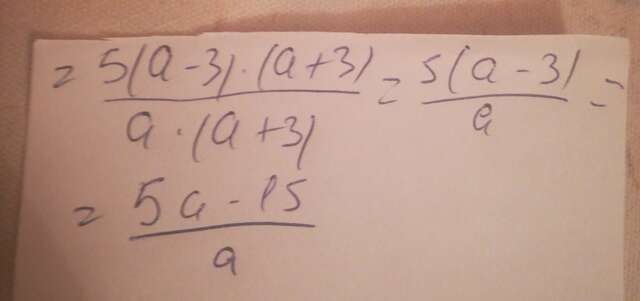 = 5(a-3)·(a+3) / a·(a+3) = 5(a-3) / a =
= 5a-15 / a